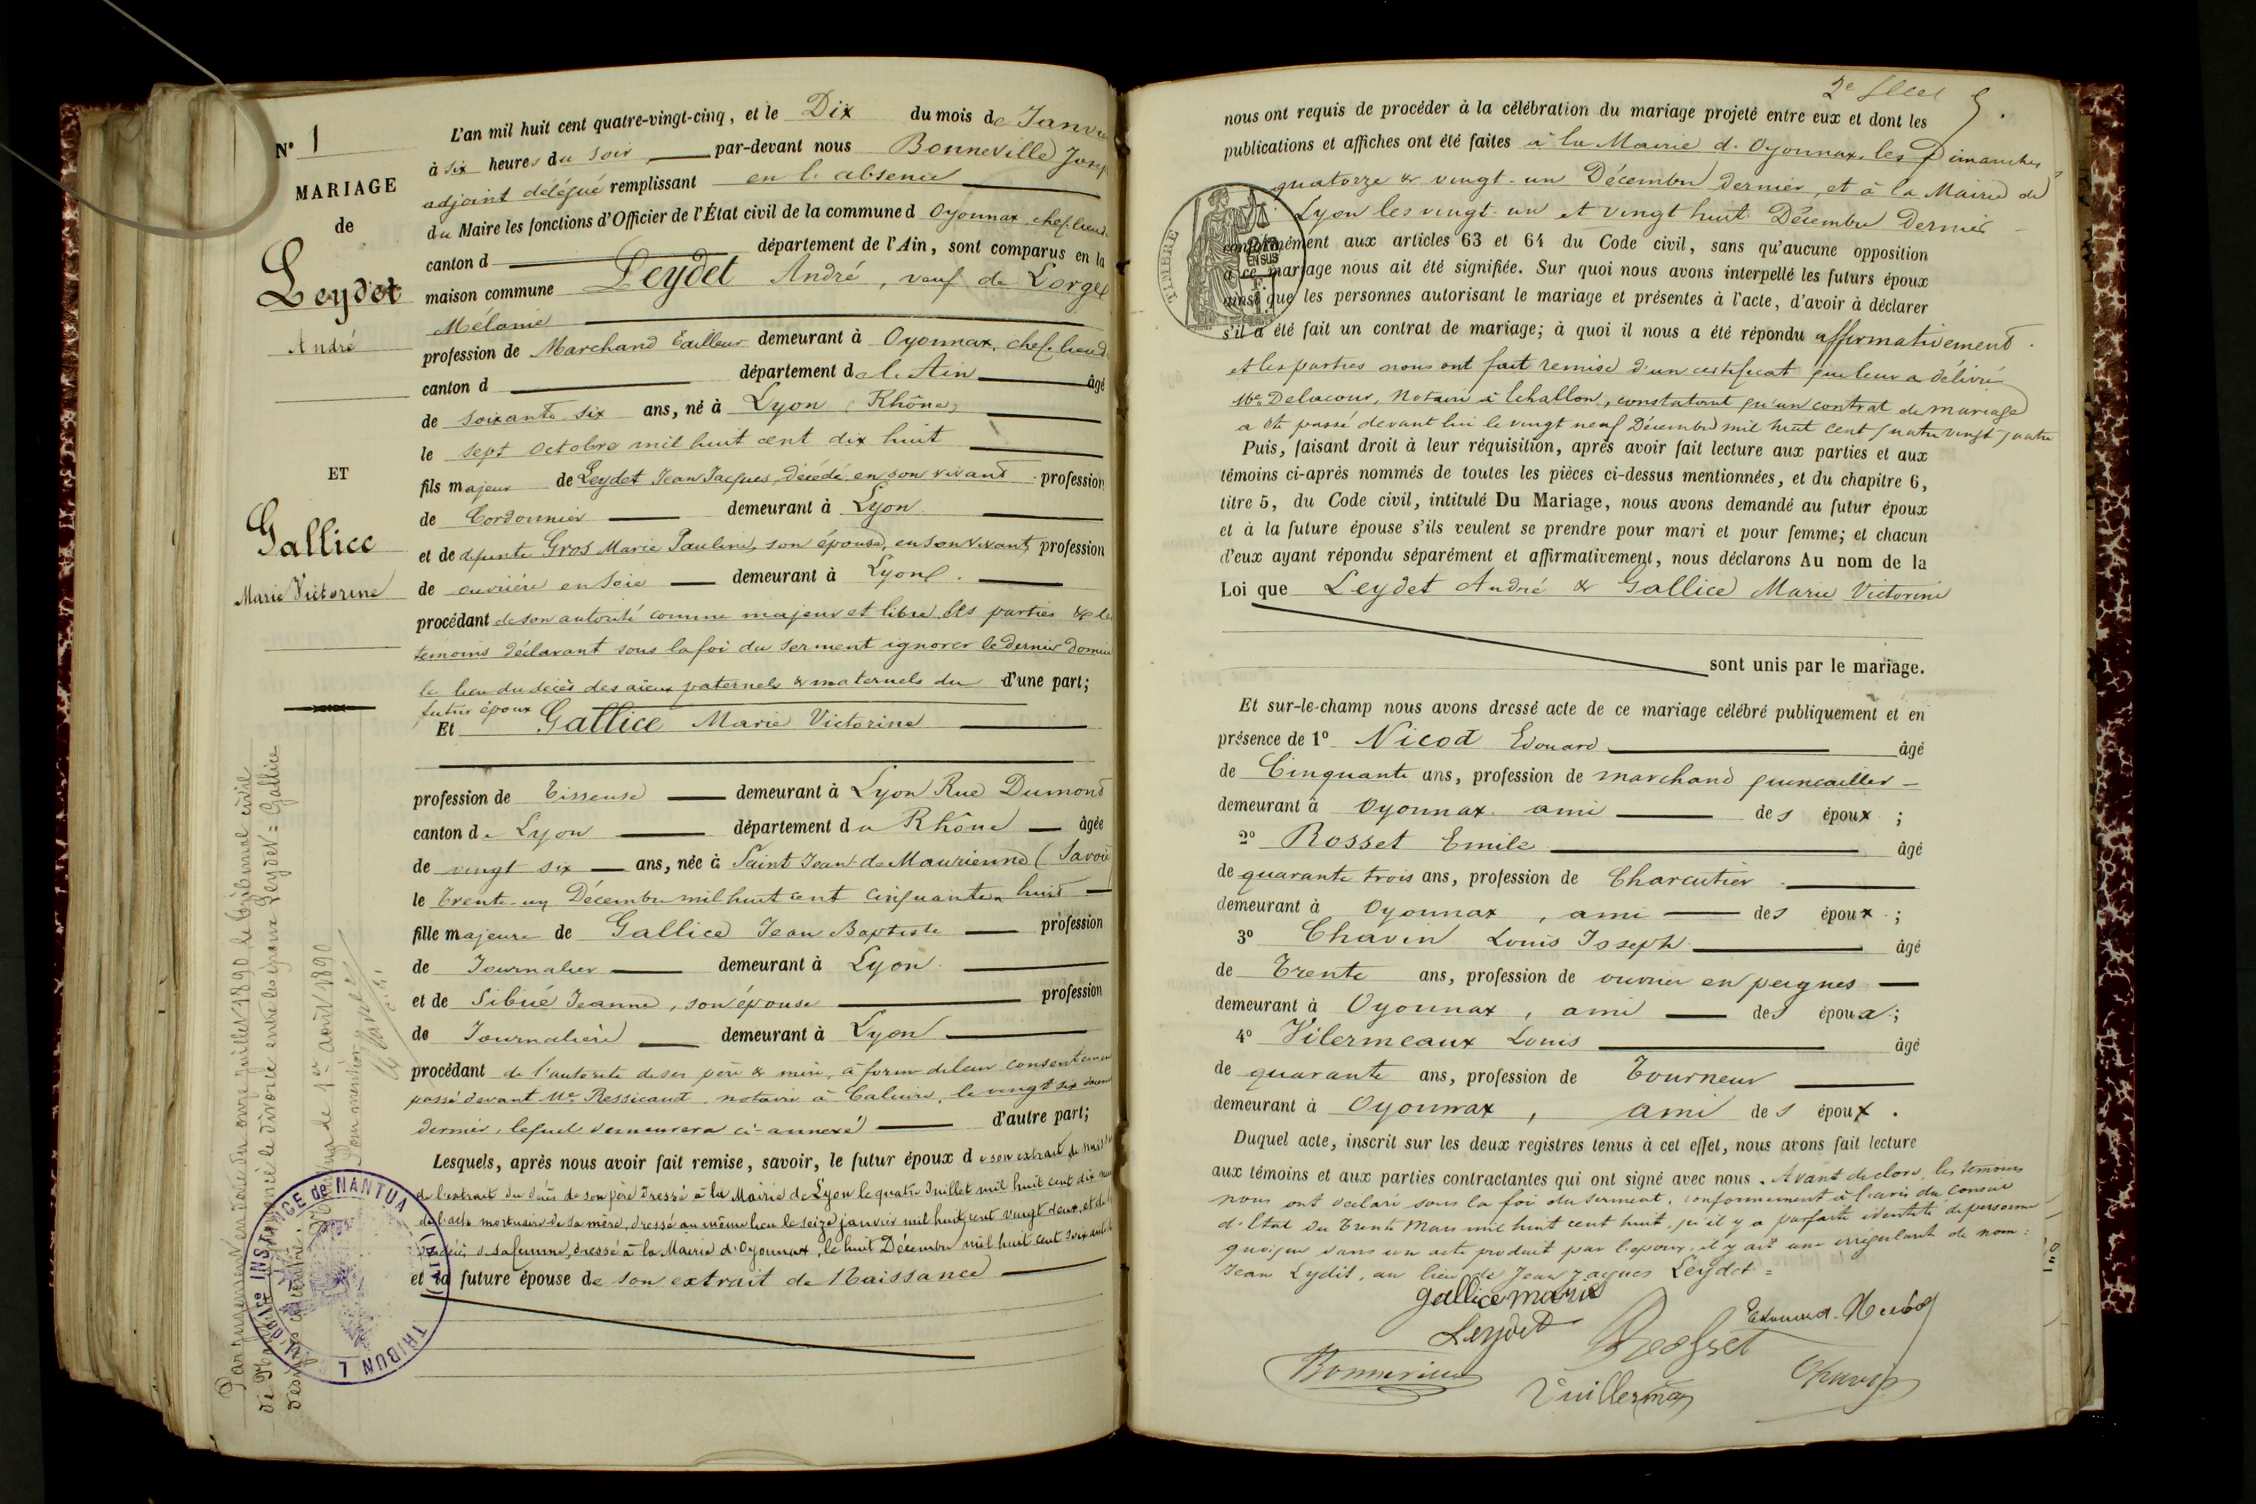 N° 1
MARIAGE
de
Leydet
André
ET
Gallice
Marie Victorine
L'an mil huit cent quatre-vingt-cinq, et le Dix du mois de Janvi
à six heures du soir, par-devant nous Bonneville Josep
adjoint délégué remplissant en l'absence
du Maire les fonctions d'Officier de l'État civil de la commune d Oyonnax, chef-lieu de
canton d département de l'Ain, sont comparus en la
maison commune Leydet André, veuf de Lorge
Mélanie
profession de Marchand Tailleur demeurant à Oyonnax, chef-lieu d
canton d département de l'Ain âgé
de soixante six ans, né à Lyon (Rhône)
le sept octobre mil huit cent dix huit
fils majeur de Leydet Jean Jacques, décédé en son vivant profession
de Cordonnier demeurant à Lyon
et de défunte Gros Marie Pauline, son épouse, en son vivant, profession
de ouvrière en soie demeurant à Lyon.
procédant de son autorité comme majeur et libre. Les parties & les
témoins déclarant sous la foi du serment ignorer le dernier domici
le lieu du décès des aïeux paternels & maternels du d'une part;
futur époux
Et Gallice Marie Victorine
profession de Tisseuse demeurant à Lyon Rue Dumond
canton de Lyon département du Rhône âgée
de vingt six ans, née à Saint Jean de Maurienne (Savoie
le trente-un Décembre mil huit cent cinquante huit
fille majeure de Gallice Jean Baptiste profession
de Journalier demeurant à Lyon
et de Sibué Jeanne, son épouse profession
de Journalière demeurant à Lyon
procédant de l'autorité de ses père & mère, à forme de leur consentement
passé devant Me Ressicaud notaire à Caluire, le vingt six
dernier, lequel demeurera ci-annexé d'autre part;
Lesquels, après nous avoir fait remise, savoir, le futur époux de son extrait de naiss
de l'extrait du décès de son père dressé à la Mairie de Lyon le quatre Juillet mil huit cent dix
de l'acte mortuaire de sa mère, dressé au même lieu le seize janvier mil huit cent vingt deux, et de l
de sa femme, dressé à la Mairie d'Oyonnax, le huit Décembre mil huit cent
et la future épouse de son extrait de Naissance
Par jugement en date du onze juillet 1890 le tribunal civil
de Nantua a prononcé le divorce entre les époux Leydet = Gallice
1er août 1890
Pour mention
TRIBUNAL DE 1re INSTANCE de NANTUA (AIN)
2e
5.
nous ont requis de procéder à la célébration du mariage projeté entre eux et dont les
publications et affiches ont été faites à la Mairie d'Oyonnax, les Dimanches
quatorze & vingt-un Décembre dernier, et à la Mairie de
Lyon les vingt-un et vingt huit Décembre dernier
conformément aux articles 63 et 64 du Code civil, sans qu'aucune opposition
à ce mariage nous ait été signifiée. Sur quoi nous avons interpellé les futurs époux
ainsi que les personnes autorisant le mariage et présentes à l'acte, d'avoir à déclarer
s'il a été fait un contrat de mariage; à quoi il nous a été répondu affirmativement.
et les parties nous ont fait remise d'un certificat que leur a délivré
Me Delacour, Notaire à Echallon, constatant qu'un contrat de mariage
a été passé devant lui le vingt neuf Décembre mil huit cent quatre vingt quatre
TIMBRE
EN SUS
Puis, faisant droit à leur réquisition, après avoir fait lecture aux parties et aux
témoins ci-après nommés de toutes les pièces ci-dessus mentionnées, et du chapitre 6,
titre 5, du Code civil, intitulé Du Mariage, nous avons demandé au futur époux
et à la future épouse s'ils veulent se prendre pour mari et pour femme; et chacun
d'eux ayant répondu séparément et affirmativement, nous déclarons Au nom de la
Loi que Leydet André & Gallice Marie Victorine
sont unis par le mariage.
Et sur-le-champ nous avons dressé acte de ce mariage célébré publiquement et en
présence de 1° Nicod Edouard âgé
de Cinquante ans, profession de marchand quincailler
demeurant à Oyonnax ami des époux;
2° Rosset Emile âgé
de quarante trois ans, profession de Charcutier
demeurant à Oyonnax, ami des époux;
3° Chavin Louis Joseph âgé
de Trente ans, profession de ouvrier en peignes
demeurant à Oyonnax, ami des époux;
4° Vilermeaux Louis âgé
de quarante ans, profession de Tourneur
demeurant à Oyonnax, ami des époux.
Duquel acte, inscrit sur les deux registres tenus à cet effet, nous avons fait lecture
aux témoins et aux parties contractantes qui ont signé avec nous. Avant de clore, les témoins
nous ont déclaré sous la foi du serment, conformément à l'avis du Conseil
d'Etat du trente Mars mil huit cent huit, qu'il y a parfaite identité de personne
quoique dans un acte produit par l'époux, il y ait une irrégularité de nom:
Jean Lydit, au lieu de Jean Jacques Leydet =
gallice marie
Leydet
Rosset
Edouard Nicod
Bonneville
Vuillermoz
Chavin